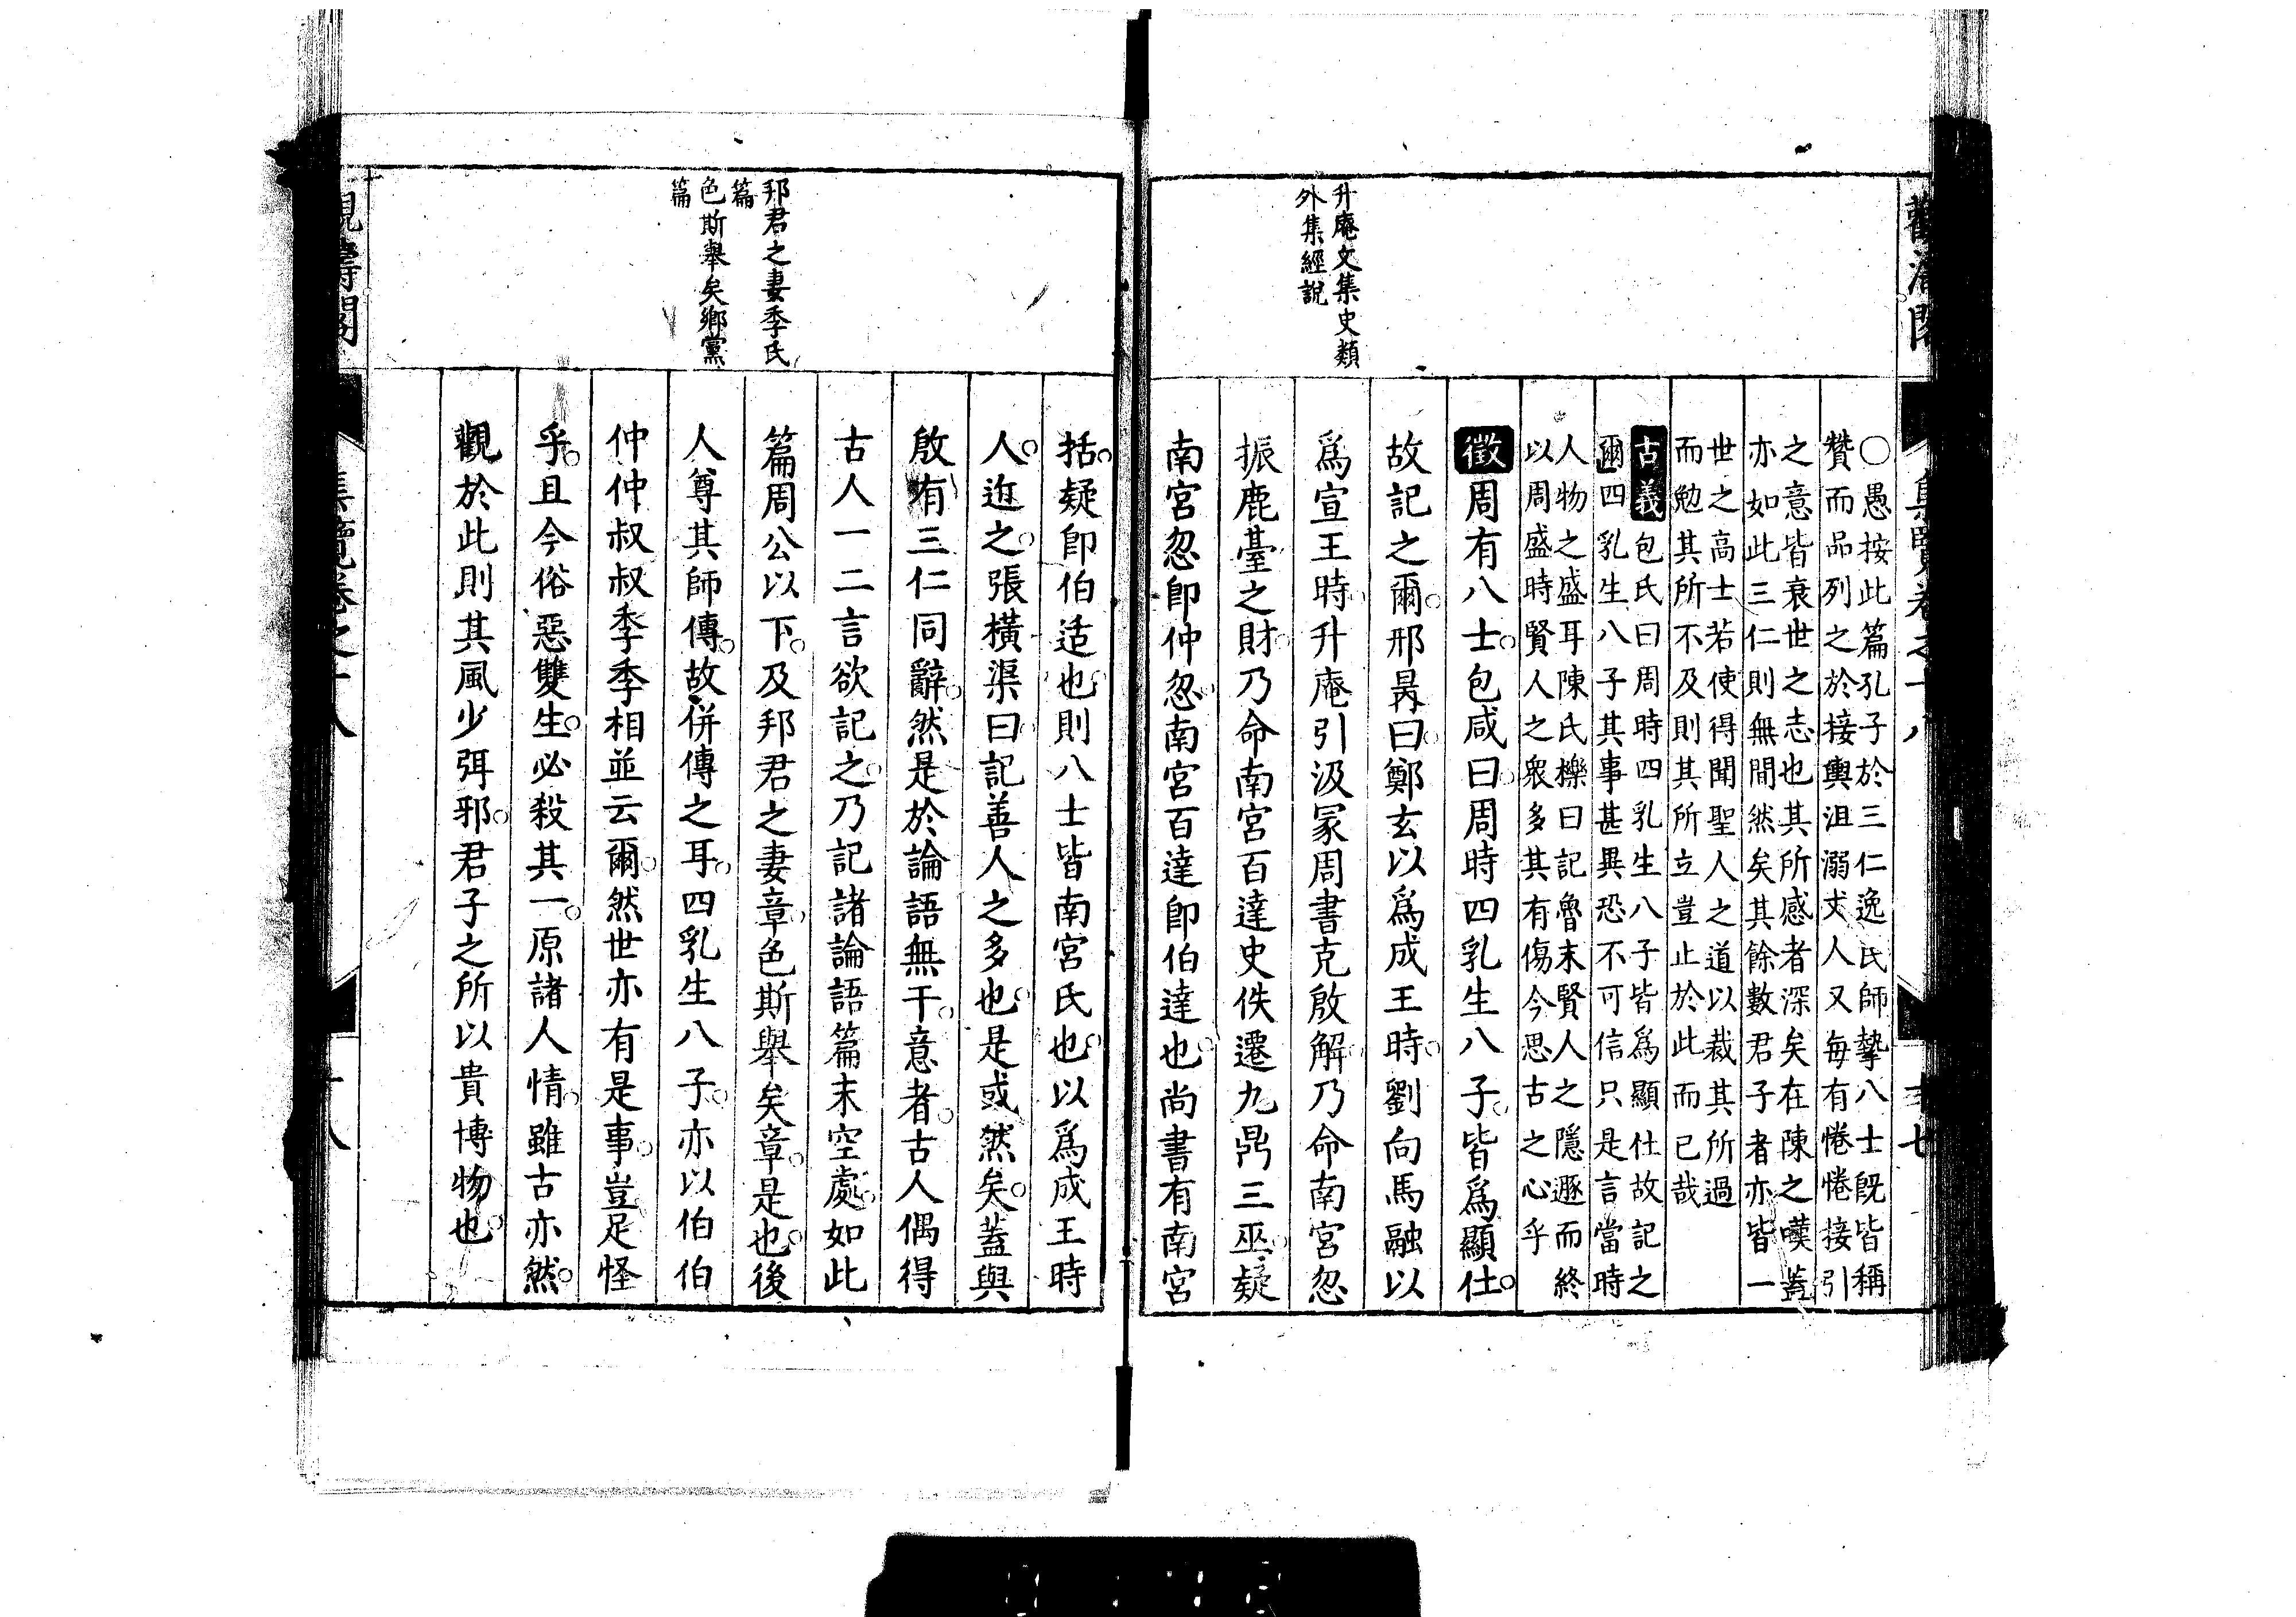 升庵文集史類
外集經說
〇愚按此篇孔子於三仁逸民師摯八士旣皆稱
贊而品列之於接輿沮溺丈人又每有惓惓接引
之意皆衰世之志也其所感者深矣在陳之嘆蓋
亦如此三仁則無間然矣其餘數君子者亦皆一
世之高士若使得聞聖人之道以裁其所過
而勉其所不及則其所立豈止於此而已哉
古義包氏曰周時四乳生八子皆爲顯仕故記之
爾四乳生八子其事甚異恐不可信只是言當時
人物之盛耳陳氏櫟曰記魯末賢人之隱遯而終
以周盛時賢人之衆多其有傷今思古之心乎
徵周有八士包咸曰周時四乳生八子皆爲顯仕
故記之爾邢昺曰鄭玄以爲成王時劉向馬融以
爲宣王時升庵引汲冢周書克殷解乃命南宮忽
振鹿臺之財乃命南宮百達史佚遷九鼎三巫疑
南宮忽卽仲忽南宮百達卽伯達也尚書有南宮
括疑卽伯适也則八士皆南宮氏也以爲成王時
人近之張橫渠曰記善人之多也是或然矣蓋與
殷有三仁同辭然是於論語無干意者古人偶得
古人一二言欲記之乃記諸論語篇末空處如此
篇周公以下及邦君之妻章色斯舉矣章是也後
人尊其師傳故併傳之耳四乳生八子亦以伯伯
仲仲叔叔季季相並云爾然世亦有是事豈足怪
乎且今俗惡雙生必殺其一原諸人情雖古亦然
觀於此則其風少弭邪君子之所以貴博物也
邦君之妻季氏
篇
色斯舉矣鄉黨
篇